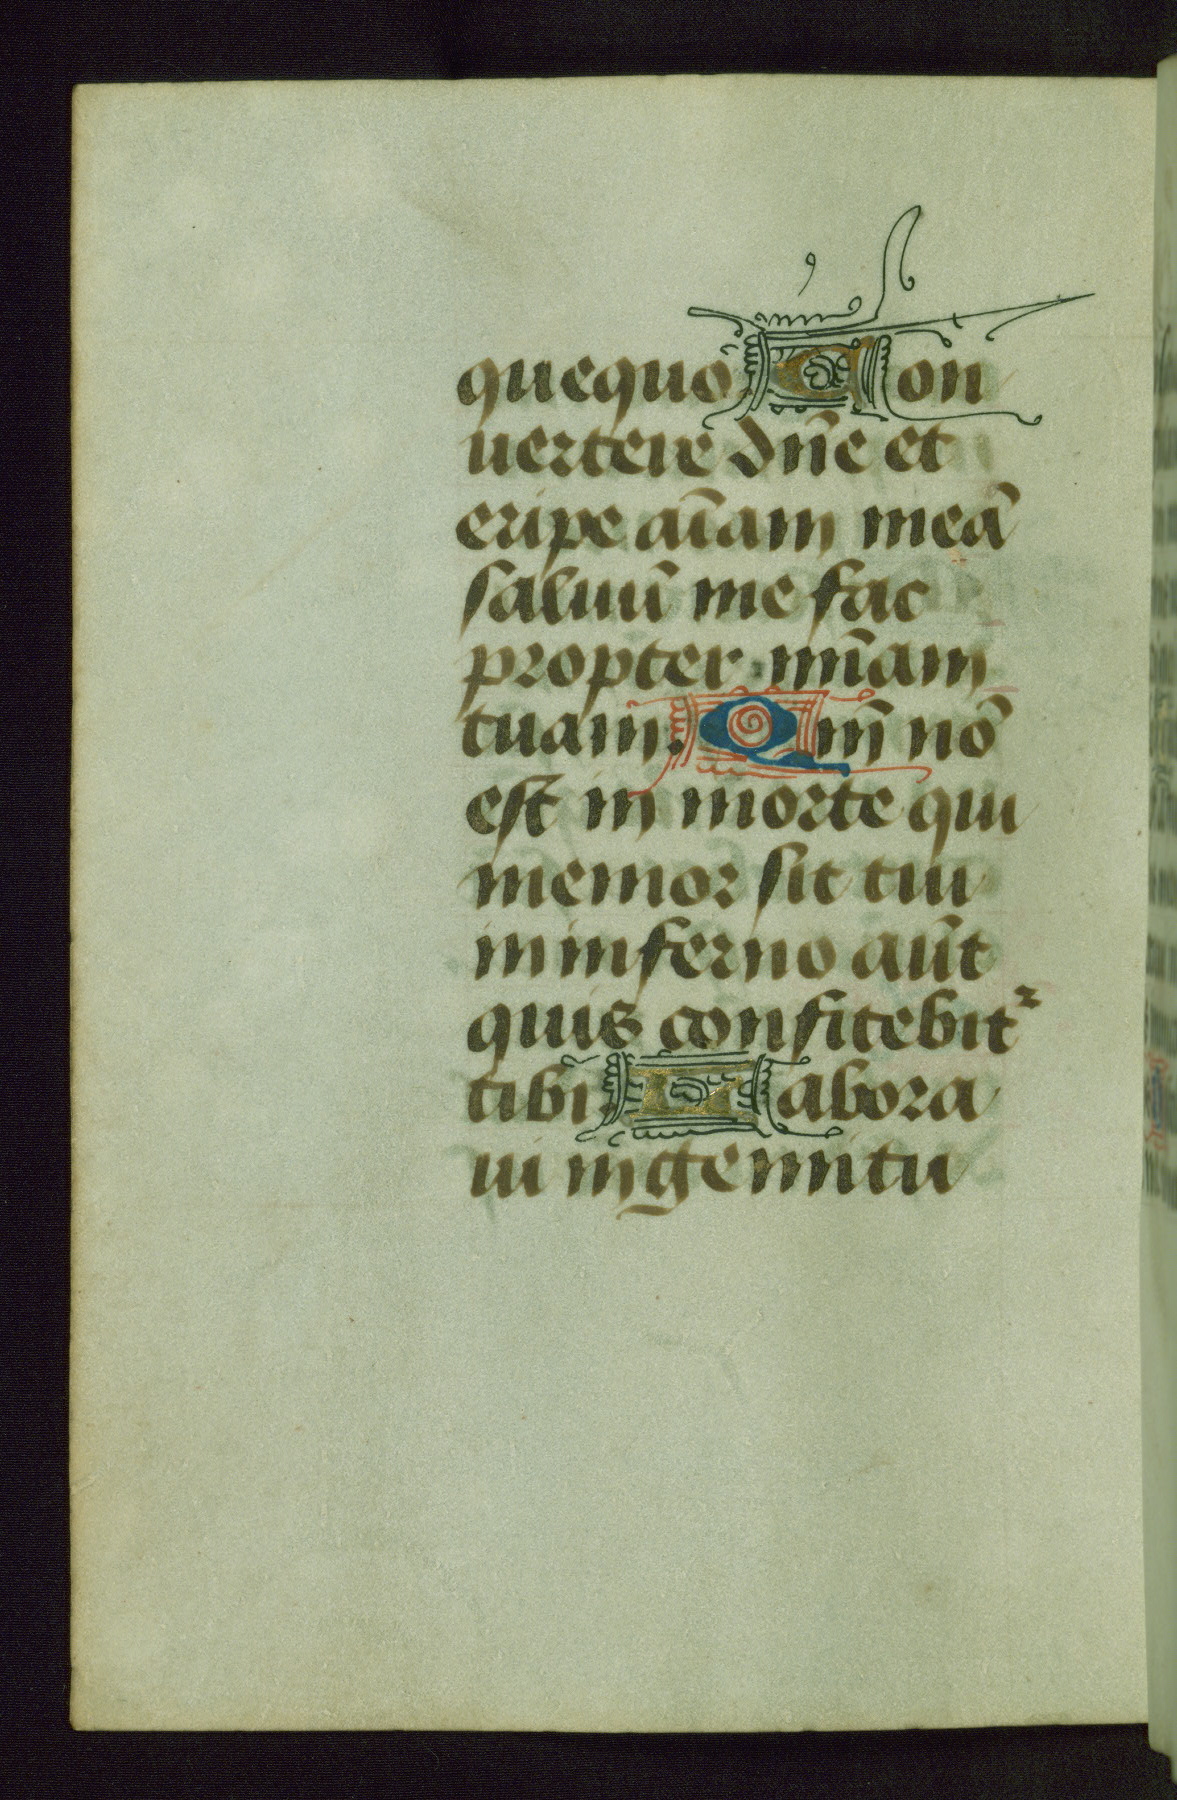 quequo. Con
uertere dn̄e et
eripe aīam meā
saluū me fac
propter mīam
tuam. Qm̄ nō
est in morte qui
memor sit tui
in inferno aūt
quis confitebitᷣ
tibi. Labora
ui in gemitu